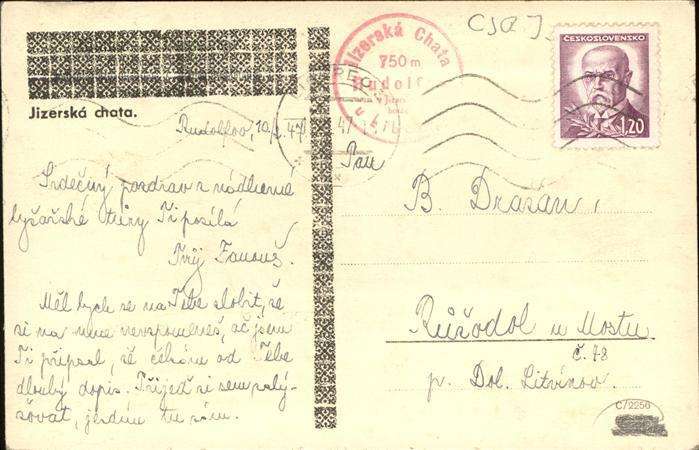 Jizerská chata.
Rudolfov, 10/2. 47
Srdečný pozdrav z nádherné
lyžařské túry Ti posílá
Tvůj Fanouš.
Měl bych se na Tebe zlobit, že
si na mne nevzpomeneš, ač jsem
Ti připsal, že čekám od Tebe
dlouhý dopis. Přijeď si sem zalý-
žovat, jezdím tu sám.
Jizerská Chata
750 m
Rudolf
ČESKOSLOVENSKO
1,20
Pan
B. Drasán,
Růžodol u Mostu
č. 78
p. Dol. Litvínov.
C/2256